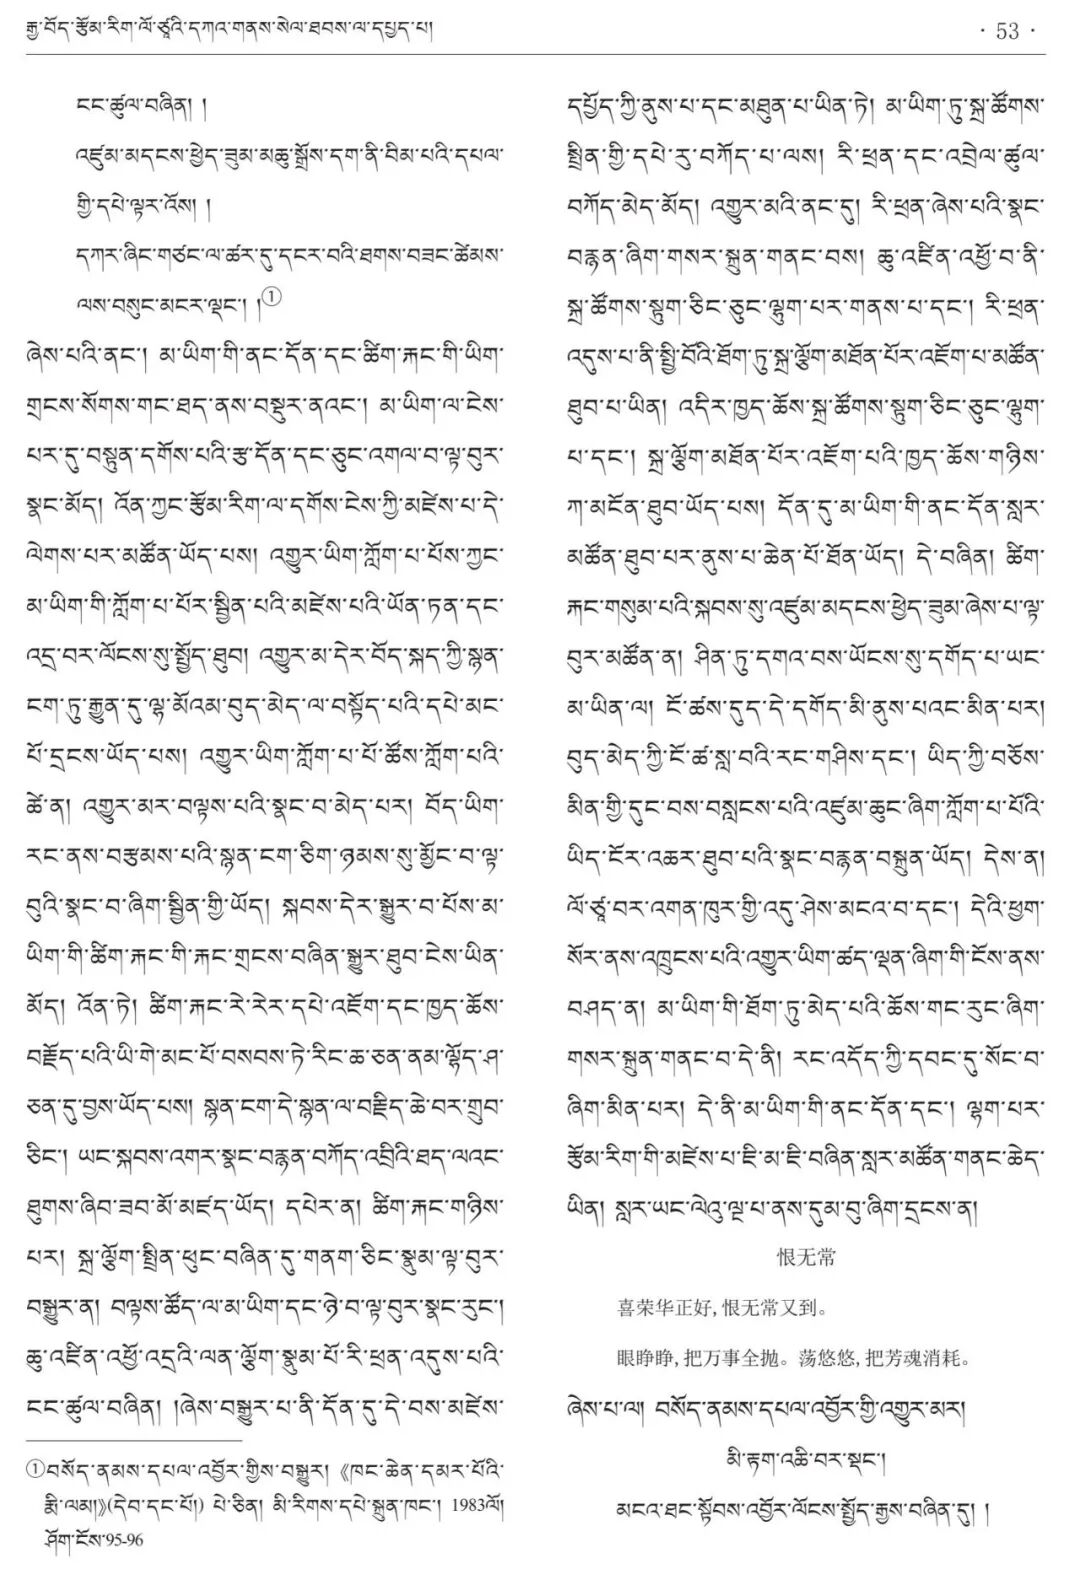 རྒྱ་བོད་རྩོམ་རིག་ལོ་ཙཱའི་དཀའ་གནས་སེལ་ཐབས་ལ་དཔྱད་པ།
· 53 ·
ངང་ཚུལ་བཞིན། །
འཛུམ་མདངས་ཕྱེད་ཟུམ་མཆུ་སྒྲོས་དག་ནི་བིམ་པའི་དཔལ་
གྱི་དཔེ་ལྟར་འོས། །
དཀར་ཞིང་གཙང་ལ་ཚར་དུ་དངར་བའི་ཐགས་བཟང་ཚེམས་
ལས་བསུང་མངར་ལྡང་། །①
ཞེས་པའི་ནང་། མ་ཡིག་གི་ནང་དོན་དང་ཚིག་རྐང་གི་ཡིག་
གྲངས་སོགས་གང་ཐད་ནས་བསྡུར་ནའང་། མ་ཡིག་ལ་ངེས་
པར་དུ་བསྟུན་དགོས་པའི་རྩ་དོན་དང་ཅུང་འགལ་བ་ལྟ་བུར་
སྣང་མོད། འོན་ཀྱང་རྩོམ་རིག་ལ་དགོས་ངེས་ཀྱི་མཛེས་པ་དེ་
ལེགས་པར་མཚོན་ཡོད་པས། འགྱུར་ཡིག་ཀློག་པ་པོས་ཀྱང་
མ་ཡིག་གི་ཀློག་པ་པོར་སྦྱིན་པའི་མཛེས་པའི་ཡོན་ཏན་དང་
འདྲ་བར་ལོངས་སུ་སྤྱོད་ཐུབ། འགྱུར་མ་དེར་བོད་སྐད་ཀྱི་སྙན་
ངག་ཏུ་རྒྱུན་དུ་ལྷ་མོའམ་བུད་མེད་ལ་བསྟོད་པའི་དཔེ་མང་
པོ་དྲངས་ཡོད་པས། འགྱུར་ཡིག་ཀློག་པ་པོ་ཚོས་ཀློག་པའི་
ཚེ་ན། འགྱུར་མར་བལྟས་པའི་སྣང་བ་མེད་པར། བོད་ཡིག་
རང་ནས་བརྩམས་པའི་སྙན་ངག་ཅིག་ཉམས་སུ་མྱོང་བ་ལྟ་
བུའི་སྣང་བ་ཞིག་སྦྱིན་གྱི་ཡོད། སྐབས་དེར་སྒྱུར་བ་པོས་མ་
ཡིག་གི་ཚིག་རྐང་གི་རྐང་གྲངས་བཞིན་སྒྱུར་ཐུབ་ངེས་ཡིན་
མོད། འོན་ཏེ། ཚིག་རྐང་རེ་རེར་དཔེ་འཇོག་དང་ཁྱད་ཆོས་
བརྗོད་པའི་ཡི་གེ་མང་པོ་བསབས་ཏེ་རིང་ཆ་ཅན་ནམ་ལྷོད་ཤ་
ཅན་དུ་བྱས་ཡོད་པས། སྙན་ངག་དེ་སྙན་ལ་བརྗིད་ཆེ་བར་གྲུབ་
ཅིང་། ཡང་སྐབས་འགར་སྣང་བརྙན་བཀོད་འབྲིའི་ཐད་ལའང་
ཐུགས་ཞིབ་ཟབ་མོ་མཛད་ཡོད། དཔེར་ན། ཚིག་རྐང་གཉིས་
པར། སྐྲ་ལྕོག་སྤྲིན་ཕུང་བཞིན་དུ་གནག་ཅིང་སྣུམ་ལྟ་བུར་
བསྒྱུར་ན། བལྟས་ཚོད་ལ་མ་ཡིག་དང་ཉེ་བ་ལྟ་བུར་སྣང་རུང་།
ཆུ་འཛིན་འཕྱོ་འདྲའི་ལན་ལྕོག་སྣུམ་པོ་རི་ཕྲན་འདུས་པའི་
ངང་ཚུལ་བཞིན། །ཞེས་བསྒྱུར་པ་ནི་དོན་དུ་དེ་བས་མཛེས་
①བསོད་ནམས་དཔལ་འབྱོར་གྱིས་བསྒྱུར། 《ཁང་ཆེན་དམར་པོའི་
རྨི་ལམ།》(དེབ་དང་པོ།) པེ་ཅིན། མི་རིགས་དཔེ་སྐྲུན་ཁང་། 1983ལོ།
ཤོག་ངོས་95-96
དཔྱོད་ཀྱི་ནུས་པ་དང་མཐུན་པ་ཡིན་ཏེ། མ་ཡིག་ཏུ་སྐྲ་ཚོགས་
སྤྲིན་གྱི་དཔེ་རུ་བཀོད་པ་ལས། རི་ཕྲན་དང་འབྲེལ་ཚུལ་
བཀོད་མེད་མོད། འགྱུར་མའི་ནང་དུ། རི་ཕྲན་ཞེས་པའི་སྣང་
བརྙན་ཞིག་གསར་སྐྲུན་གནང་བས། ཆུ་འཛིན་འཕྱོ་བ་ནི་
སྐྲ་ཚོགས་སྟུག་ཅིང་ཅུང་ལྷུག་པར་གནས་པ་དང་། རི་ཕྲན་
འདུས་པ་ནི་སྤྱི་བོའི་ཐོག་ཏུ་སྐྲ་ལྕོག་མཐོན་པོར་འཇོག་པ་མཚོན་
ཐུབ་པ་ཡིན། འདིར་ཁྱད་ཆོས་སྐྲ་ཚོགས་སྟུག་ཅིང་ཅུང་ལྷུག་
པ་དང་། སྐྲ་ལྕོག་མཐོན་པོར་འཇོག་པའི་ཁྱད་ཆོས་གཉིས་
ཀ་མངོན་ཐུབ་ཡོད་པས། དོན་དུ་མ་ཡིག་གི་ནང་དོན་སླར་
མཚོན་ཐུབ་པར་ནུས་པ་ཆེན་པོ་ཐོན་ཡོད། དེ་བཞིན། ཚིག་
རྐང་གསུམ་པའི་སྐབས་སུ་འཛུམ་མདངས་ཕྱེད་ཟུམ་ཞེས་པ་ལྟ་
བུར་མཚོན་ན། ཤིན་ཏུ་དགའ་བས་ཡོངས་སུ་དགོད་པ་ཡང་
མ་ཡིན་ལ། ངོ་ཚས་དུད་དེ་དགོད་མི་ནུས་པའང་མིན་པར།
བུད་མེད་ཀྱི་ངོ་ཚ་སླ་བའི་རང་གཤིས་དང་། ཡིད་ཀྱི་བཅོས་
མིན་གྱི་དྭང་བས་བསླངས་པའི་འཛུམ་ཆུང་ཞིག་ཀློག་པ་པོའི་
ཡིད་ངོར་འཆར་ཐུབ་པའི་སྣང་བརྙན་བསྐྲུན་ཡོད། དེས་ན།
ལོ་ཙཱ་བར་འགན་ཁུར་གྱི་འདུ་ཤེས་མངའ་བ་དང་། དེའི་ཕྱག་
སོར་ནས་འཁྲུངས་པའི་འགྱུར་ཡིག་ཚད་ལྡན་ཞིག་གི་ངོས་ནས་
བཤད་ན། མ་ཡིག་གི་ཐོག་ཏུ་མེད་པའི་ཆོས་གང་རུང་ཞིག་
གསར་སྐྲུན་གནང་བ་དེ་ནི། རང་འདོད་ཀྱི་དབང་དུ་སོང་བ་
ཞིག་མིན་པར། དེ་ནི་མ་ཡིག་གི་ནང་དོན་དང་། ལྷག་པར་
རྩོམ་རིག་གི་མཛེས་པ་ཇི་མ་ཇི་བཞིན་སླར་མཚོན་གནང་ཆེད་
ཡིན། སླར་ཡང་ལེའུ་ལྔ་པ་ནས་དུམ་བུ་ཞིག་དྲངས་ན།
恨无常
喜荣华正好,恨无常又到。
眼睁睁,把万事全抛。荡悠悠,把芳魂消耗。
ཞེས་པ་ལ། བསོད་ནམས་དཔལ་འབྱོར་གྱི་འགྱུར་མར།
མི་རྟག་འཆི་བར་སྡང་།
མངའ་ཐང་སྟོབས་འབྱོར་ལོངས་སྤྱོད་རྒྱས་བཞིན་དུ། །